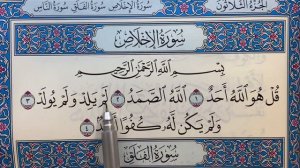 الجزء الثلاثون
سورة الإخلاص سورة الفلق سورة الناس
سورة الإخلاص
بسم الله الرحمن الرحيم
قُلْ هُوَ اللَّهُ أَحَدٌ ١ اللَّهُ الصَّمَدُ ٢ لَمْ يَلِدْ وَلَمْ يُولَدْ ٣
وَلَمْ يَكُن لَّهُ كُفُوًا ٤
سورة الفلق